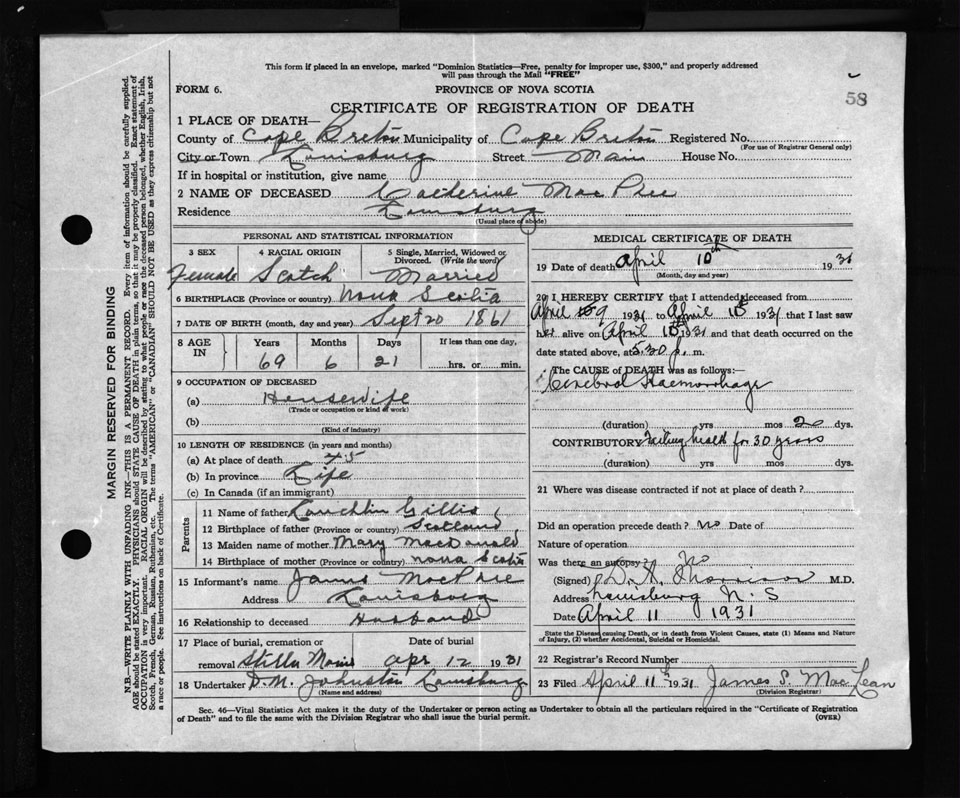 This form if placed in an envelope, marked "Dominion Statistics—Free, penalty for improper use, $300," and properly addressed
will pass through the Mail "FREE"
FORM 6.
PROVINCE OF NOVA SCOTIA
58
CERTIFICATE OF REGISTRATION OF DEATH
1 PLACE OF DEATH—
County of Cape Breton Municipality of Cape Breton Registered No.
(For use of Registrar General only)
City or Town Louisburg Street Main House No.
If in hospital or institution, give name
2 NAME OF DECEASED Catherine MacPhee
Residence Louisburg
(Usual place of abode)
PERSONAL AND STATISTICAL INFORMATION
3 SEX 4 RACIAL ORIGIN 5 Single, Married, Widowed or
Divorced. (Write the word)
Female Scotch Married
6 BIRTHPLACE (Province or country) Nova Scotia
7 DATE OF BIRTH (month, day and year) Sept 20 1861
8 AGE IN Years Months Days If less than one day,
69 6 21 hrs. or min.
9 OCCUPATION OF DECEASED
(a) Housewife
(Trade or occupation or kind of work)
(b)
(Kind of industry)
10 LENGTH OF RESIDENCE (in years and months)
(a) At place of death 45
(b) In province Life
(c) In Canada (if an immigrant)
Parents
11 Name of father Lauchlin Gillis
12 Birthplace of father (Province or country) Scotland
13 Maiden name of mother Mary MacDonald
14 Birthplace of mother (Province or country) Nova Scotia
15 Informant's name James MacPhee
Address Louisburg
16 Relationship to deceased Husband
17 Place of burial, cremation or Date of burial
removal Stella Maris Apr 12 1931
18 Undertaker D. M. Johnston Louisburg
(Name and address)
MEDICAL CERTIFICATE OF DEATH
19 Date of death April 10th 1931
(Month, day and year)
20 I HEREBY CERTIFY that I attended deceased from
April 9 1931 to April 10 1931 that I last saw
her alive on April 10th 1931 and that death occurred on the
date stated above, at 5.30 p. m.
The CAUSE of DEATH was as follows:—
Cerebral Haemorrhage
(duration) yrs mos 20 dys.
CONTRIBUTORY Failing health for 30 years
(duration) yrs mos dys.
21 Where was disease contracted if not at place of death?
Did an operation precede death? no Date of
Nature of operation
Was there an autopsy? No
(Signed) D. A. Morrison M.D.
Address Louisburg N. S
Date April 11 1931
State the Disease causing Death, or in death from Violent Causes, state (1) Means and Nature
of Injury, (2) whether Accidental, Suicidal or Homicidal.
22 Registrar's Record Number
23 Filed April 11th 1931 James P. MacLean
(Division Registrar)
Sec. 46—Vital Statistics Act makes it the duty of the Undertaker or person acting as Undertaker to obtain all the particulars required in the "Certificate of Registration
of Death" and to file the same with the Division Registrar who shall issue the burial permit. (OVER)
MARGIN RESERVED FOR BINDING
N.B.—WRITE PLAINLY WITH UNFADING INK—THIS IS A PERMANENT RECORD. Every item of information should be carefully supplied.
AGE should be stated EXACTLY. PHYSICIANS should STATE CAUSE OF DEATH in plain terms, so that it may be properly classified. Exact statement of
OCCUPATION is very important. RACIAL ORIGIN will be described by stating to what people or race the deceased person belonged, whether English, Irish,
Scotch, French, German, Russian, Ruthenian, etc. The terms "AMERICAN" or "CANADIAN" SHOULD NOT BE USED as they express citizenship but not
a race or people. See instructions on back of Certificate.